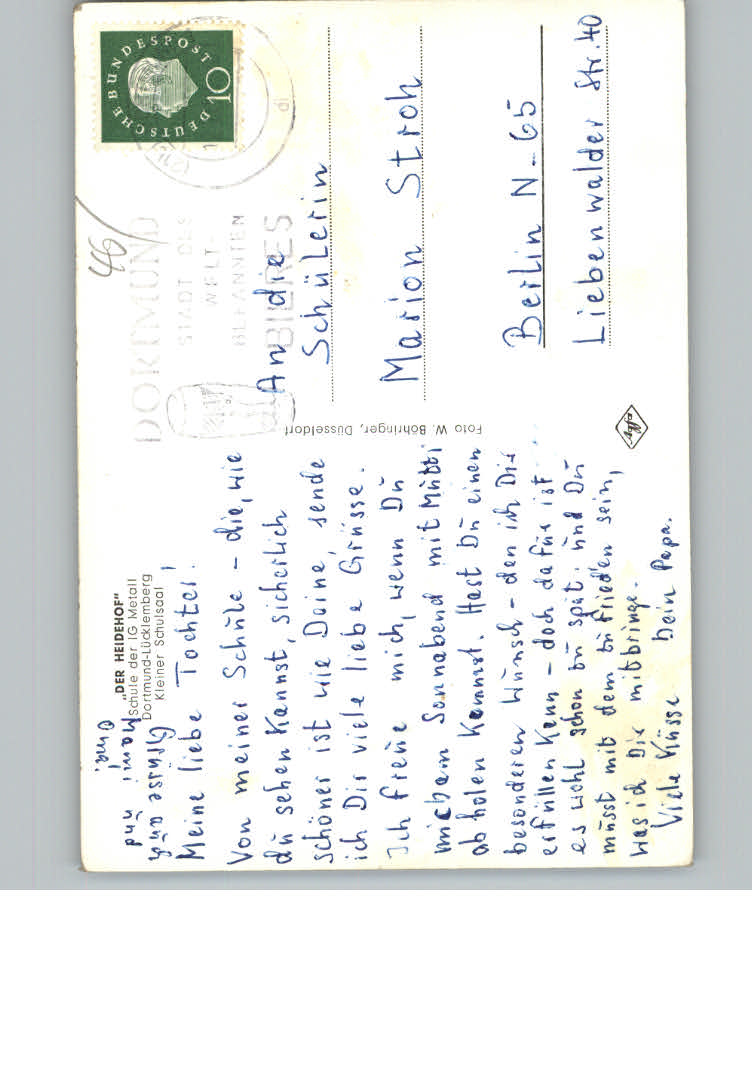 „DER HEIDEHOF"
Schule der IG Metall
Dortmund-Lücklemberg
Kleiner Schulsaal
Meine liebe Tochter!
Von meiner Schule – die, wie
du sehen kannst, sicherlich
schöner ist wie Deine, sende
ich Dir viele liebe Grüsse.
Ich freue mich, wenn Du
mich am Sonnabend mit Mutti
abholen kommst. Hast Du einen
besonderen Wunsch – den ich Dir
erfüllen kann – doch dafür ist
es wohl schon zu spät, und Du
müsst mit dem zufrieden sein,
was ich Dir mitbringe.
Viele Küsse Dein Papa.
Grüsse auch
Mami und
Oma.
Foto W. Böhringer, Düsseldorf
Agfa
46
DORTMUND
STADT DES
WELT-
BEKANNTEN
BIERES
DEUTSCHE BUNDESPOST
10
An die
Schülerin
Marion Stroh
Berlin N-65
Liebenwalder Str. 40